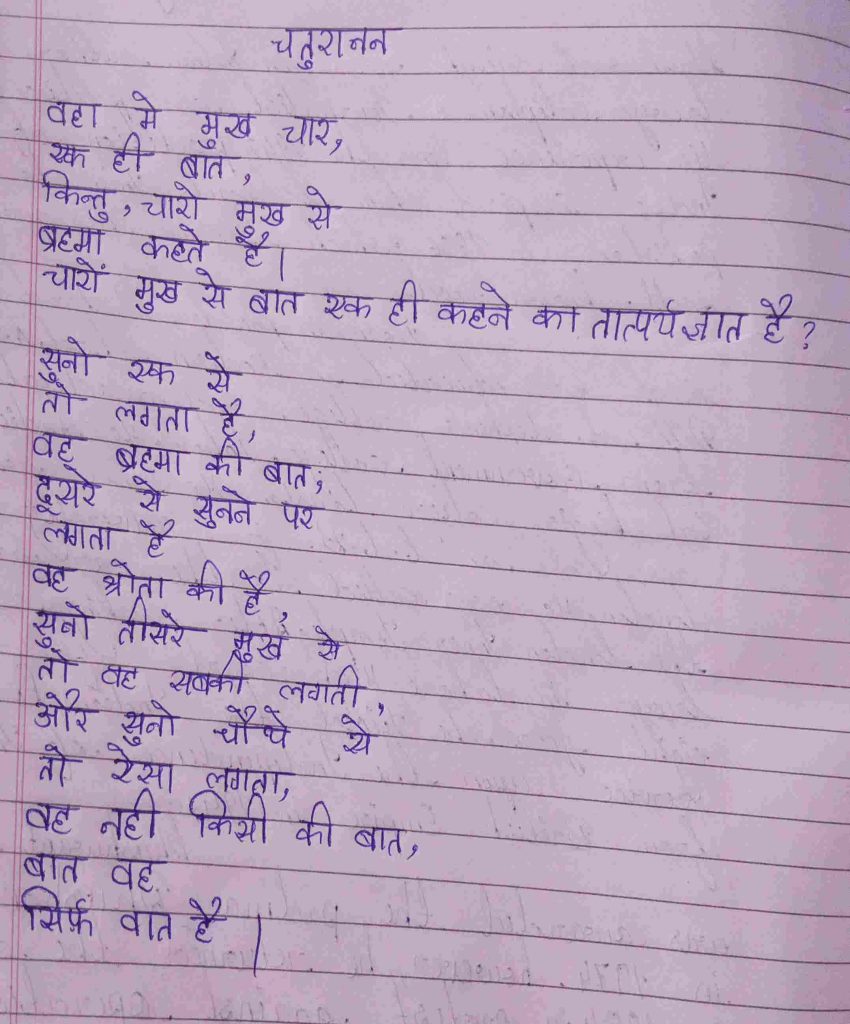 चतुरानन
वहा मे मुख चार,
एक ही बात,
किन्तु, चारो मुख से
ब्रहमा कहते है।
चारों मुख से बात एक ही कहने का तात्पर्य ज्ञात है?
सुनो एक से
तो लगता है,
वह ब्रहमा की बात,
दूसरे से सुनने पर
लगता है
वह श्रोता की है,
सुनो तीसरे मुख से
तो वह सबकी लगती,
और सुनो चौथे से
तो ऐसा लगता,
वह नही किसी की बात,
बात वह
सिर्फ़ वात है।